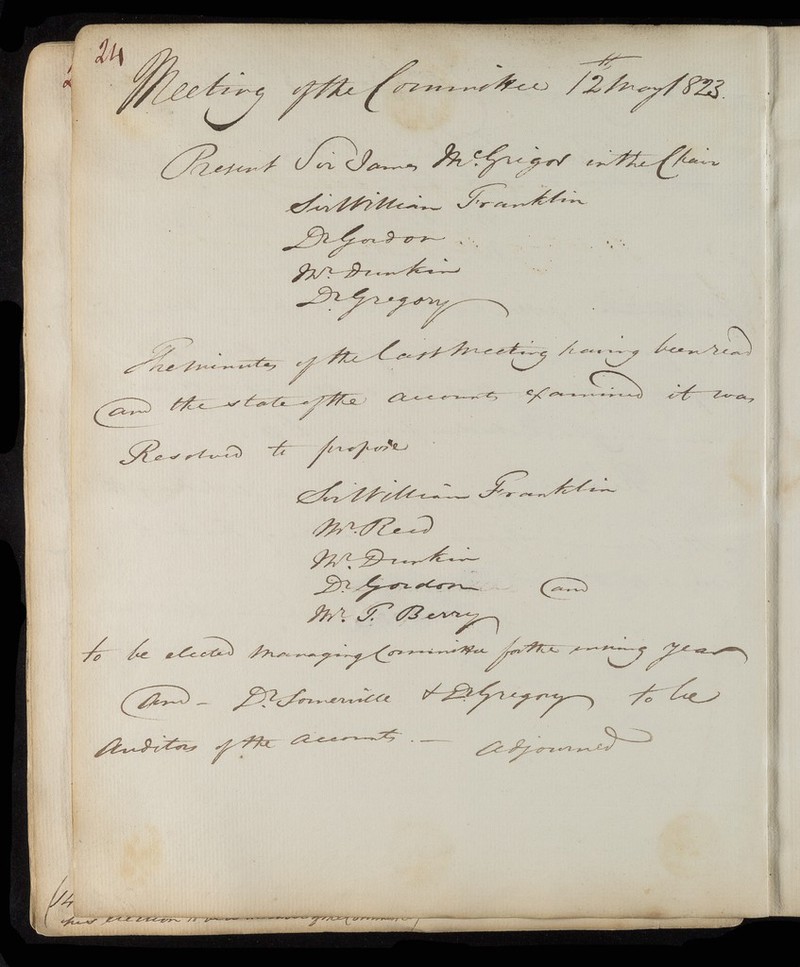 24
Meeting of the Committee 12th May 1823.
Present Sir James McGrigor in the Chair
Sir William Franklin
Dr Gordon
Mr. Dunkin
Dr Gregory
The minutes of the last Meeting having been read
and the state of the accounts examined it was
Resolved to propose
Sir William Franklin
Mr. Reed
Mr. Dunkin
Dr Gordon and
Mr. T. Berry
to be elected Managing Committee for the ensuing year
And - Dr. Somerville & Dr Gregory to be
Auditors of the accounts. — adjourned